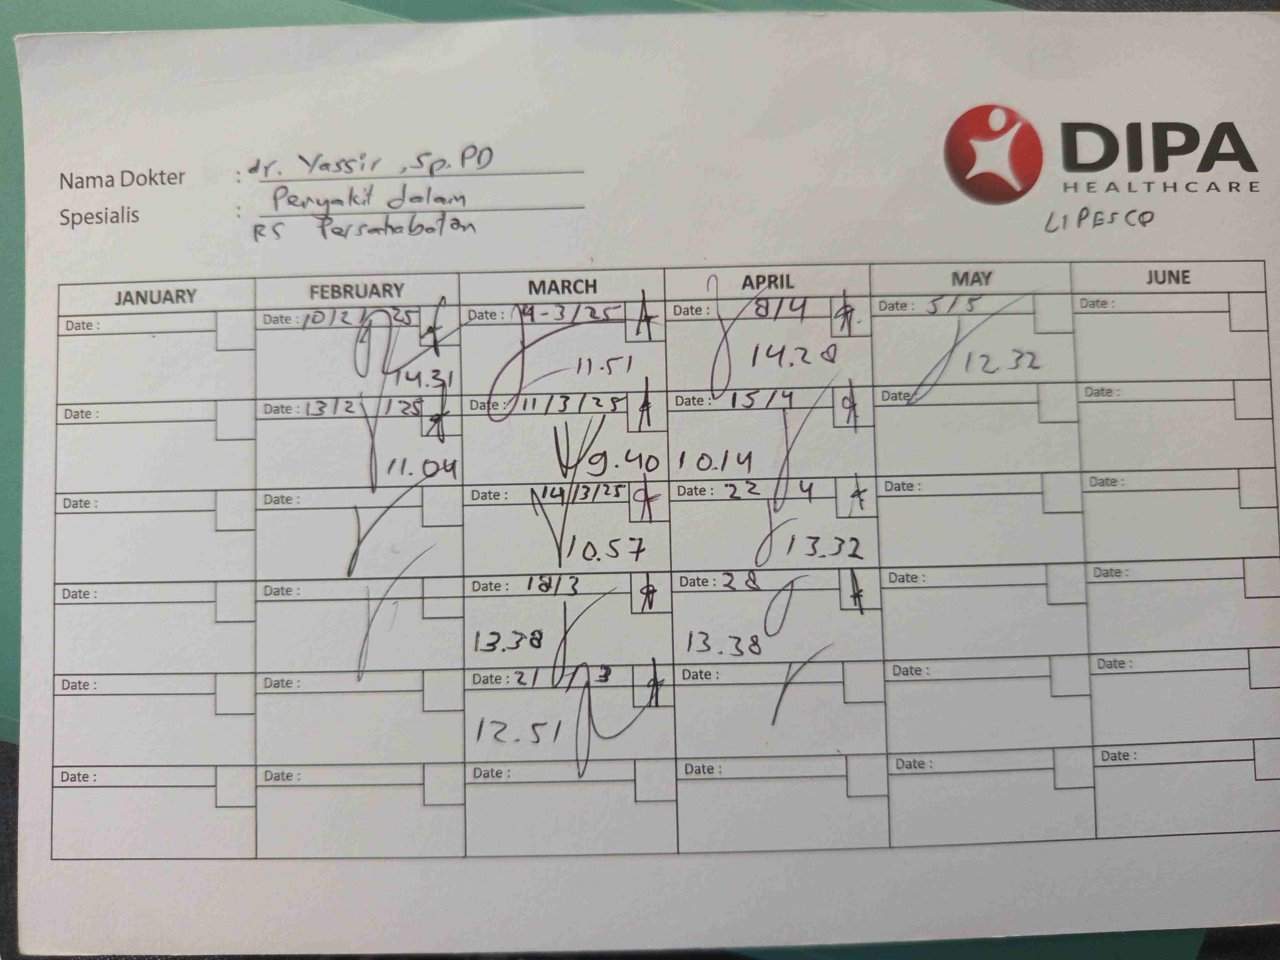 DIPA
HEALTHCARE
LIPESCO
Nama Dokter : dr. Yassir, Sp.PD
Spesialis : Penyakit dalam
RS Persahabatan
JANUARY FEBRUARY MARCH APRIL MAY JUNE
Date : Date : 10/2/25 Date : 4-3/25 Date : 8/4 Date : 5/5 Date :
14.31 11.51 14.28 12.32
Date : Date : 13/2/25 Date : 11/3/25 Date : 15/4 Date : Date :
11.04 9.40 10.14
Date : Date : Date : 14/3/25 Date : 22 4 Date : Date :
10.57 13.32
Date : Date : Date : 18/3 Date : 28 Date : Date :
13.38 13.38
Date : Date : Date : 21/3 Date : Date : Date :
12.51
Date : Date : Date : Date : Date : Date :